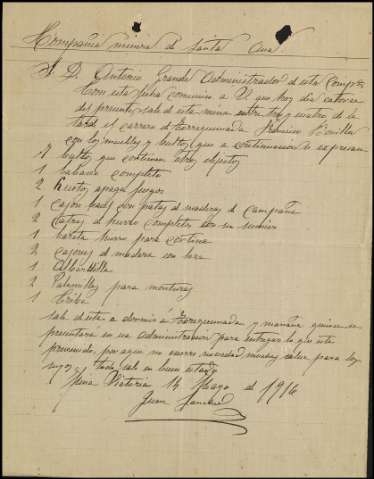 Compañia minera de Santa Ana
S. D. Antonio Grande Administrador de esta Compª
Con esta fecha comunico a V. que hoy dia catorce
del presente, sale de esta mina entre tres y cuatro de la
tarde el carrero de Torrequemada Francisco
con los muebles y bultos, que a continuacion se expresan
bultos que contienen otros objetos
1 completo
2 apaga fuegos
1 cajon para con patas de madera de Campaña
2 Catres de hierro completos con su
1 barata hierro para cortina
2 cajones de madera con
1 Albardilla
2 Palomillas para monturas
1 Criba
sale de esta a dormir á Torrequemada y mañana quince se
presentará en esa administracion para entregar lo que este
prevenido, por aqui no ocurre novedad mucha salud para los
suyos y todo sale en buen estado
Mina Victoria 14 Mayo de 1916
Juan Sanchez